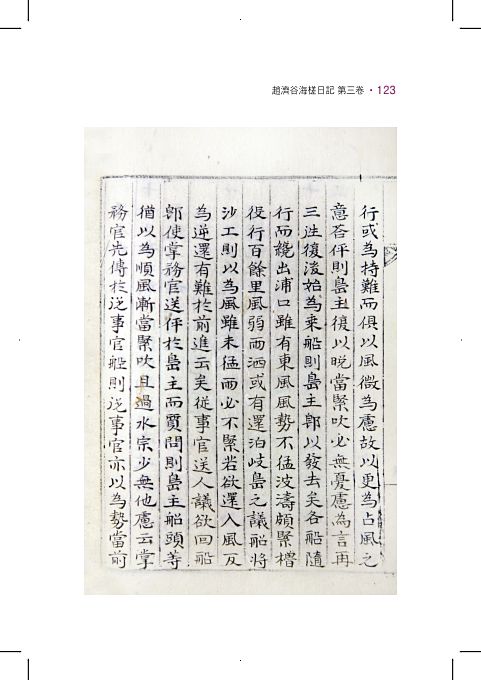 趙濟谷海槎日記 第三卷 · 123
行或為持難而俱以風微為慮故以更為占風之
意答伻則島主復以晩當緊吹必無憂慮為言再
三徃復後始為乘船則島主郞以發去矣各船隨
行而纔出浦口雖有東風風勢不猛波濤頗緊櫓
役行百餘里風弱雨洒或有還泊岐島之議船將
沙工則以為風雖未猛而必不緊若欲還入風反
為逆還有難於前進云矣従事官送人議欲回船
郞使掌務官送伻於島主而質問則島主船頭等
猶以為順風漸當緊吹且過水宗少無他慮云掌
務官先傳於従事官船則従事官亦以為勢當前